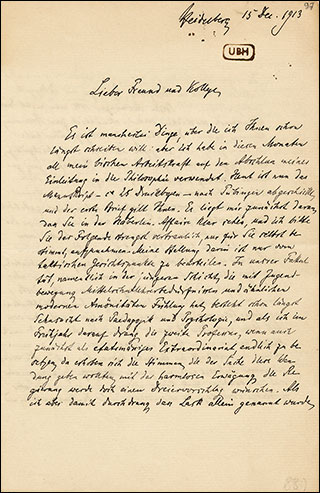 97
Heidelberg 15 Dec. 1913
UBH
Lieber Freund und Kollege,
Es ist mancherlei Dinge, über die ich Ihnen schon
längst schreiben will: aber ich habe in diesen Monaten
all mein bischen Arbeitskraft auf den Abschluss meiner
Einleitung in die Philosophie verwendet. Heut ist nun das
Manuskript – ca 25 Druckbogen – nach Tübingen abgeschickt
und der erste Brief gilt Ihnen. Es liegt mir zunächst daran,
dass Sie in der Affaire klar sehen, und ich bitte
Sie das Folgende streng vertraulich, nur für Sie selbst be-
stimmt, aufzunehmen. Meine Haltung darin ist nur vom
taktischen Gesichtspunkte zu beurteilen. In unsrer Fakul-
tät, namentlich in der jüngeren Schicht, die mit Jugend-
bewegung, und ähnlichen
modernen Fühlung hat, besteht schon längst
Sehnsucht nach Pädagogik und Psychologie, und als ich im
Frühjahr darauf drang, die zweite Professur, wenn auch
zunächst als etatmässiges Extraordinariat, endlich zu be-
setzen, da erhoben sich die Stimmen, die der Sache diese Wen-
dung geben wollten, mit der harmlosen Erwägung, die Re-
gierung werde doch einen Dreiervorschlag wünschen. Als
ich aber damit durchdrang, dass Lask allein genannt wurde,